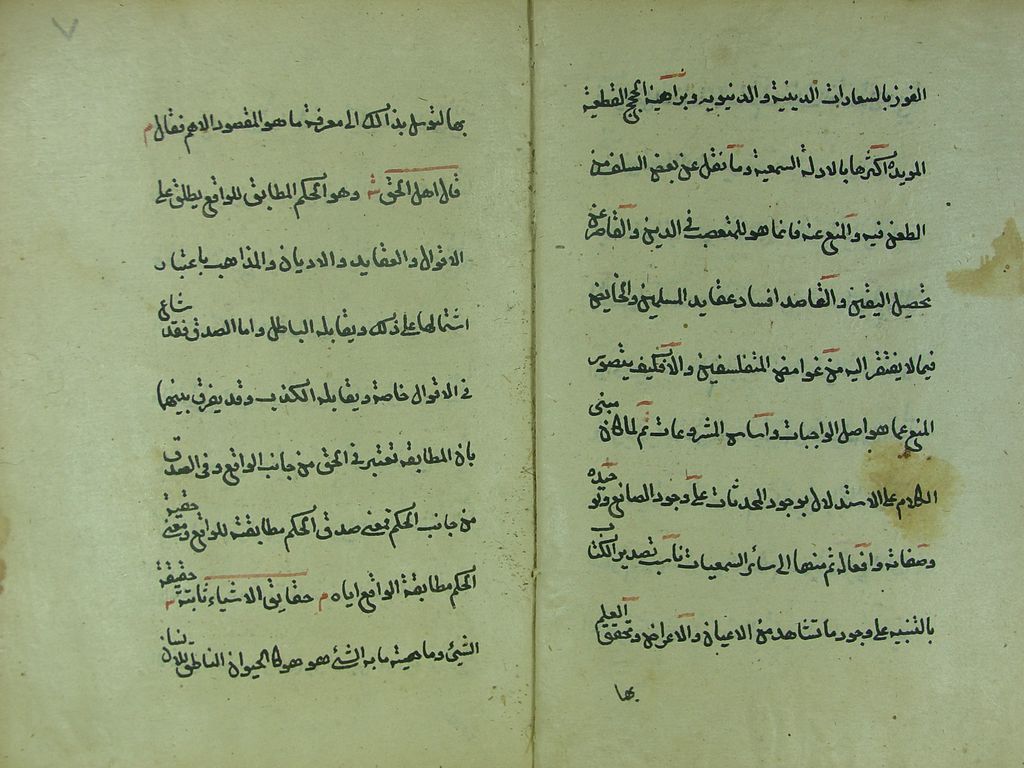 الفوز بالسعادات الدينية والدنيويه وبراهينه الحجج القطعية
المويده اكثرها بالادلة السمعية وما نقل عن بعض السلف من
الطعن فيه والمنع عنه فانما هو للمتعصب في الدين والقاصر عن
تحصيل اليقين والقاصد افساد عقايد المسلمين والخايض
فيما لا يفتقر اليه من غوامض المتفلسفين والا فكيف يتصور
المنع عما هو اصل الواجبات واساس المشروعات ثم لما كان مبنى
الكلام على الاستدلال بوجود المحدثات على وجود الصانع وتوحيده
وصفاته وافعاله ثم منها الى سائر السمعيات ناسب تصدير الكتاب
بالتنبيه على وجود ما نشاهد من الاعيان والاعراض وتحقق العلم
بها
٧
بها لتوسل بذالك الى معرفة ما هو المقصود الاهم فقال م
قال اهل الحق ش وهو الحكم المطابق للواقع يطلق على
الاقوال والعقايد والاديان والمذاهب باعتبار
اشتمالها على ذلك ويقابله الباطل واما الصدق فقد شاع
في الاقوال خاصة ويقابله الكذب وقد يفرق بينهما
بان المطابقه تعتبر في الحق من جانب الواقع وفي الصدق
من جانب الحكم فمعنى صدق الحكم مطابقته للواقع ومعنى حقية
الحكم مطابقة الواقع اياه م حقايق الاشياء ثابتة ش حقيقة
الشيئ وماهيته ما به الشئ هو هو كالحيوان الناطق للانسان